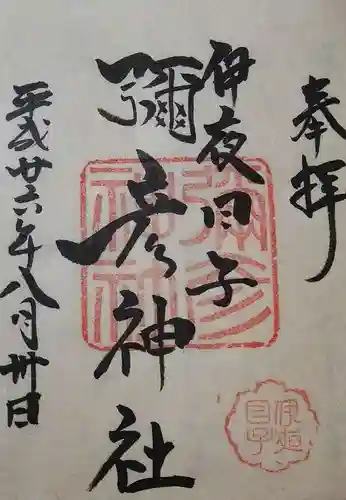 奉拝
伊夜日子
彌彦神社
平成廿六年八月卅日
彌彦神社